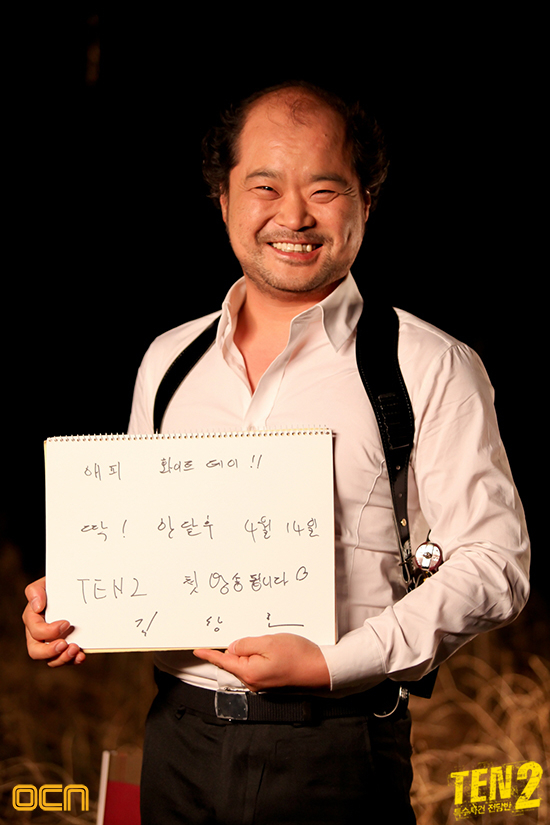 해피 화이트 데이!!
딱! 한달후 4월 14일
TEN2 첫 방송됩니다
김 상 호
OCN
TEN2
특수사건 전담반